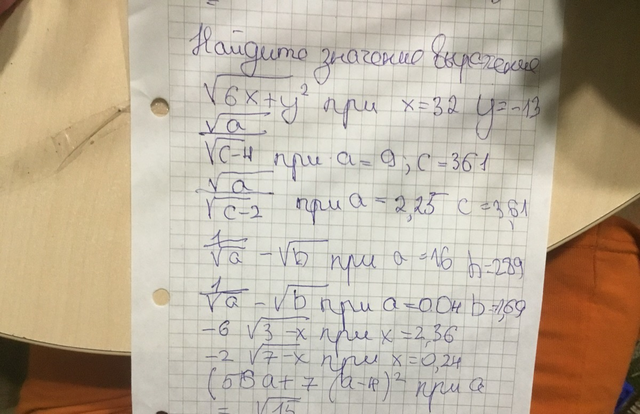 Найдите значение выражение
√6x+y² при x=32 y=-13
√a/√c-4 при a=9; c=361
√a/√c-2 при a=2,25 c=3,61
1/√a - √b при a=16 b=289
1/√a - √b при a=0.04 b=1,69
-6 √3-x при x=2,36
-2 √7-x при x=0,24
a+7 (a-4)² при a
= √15